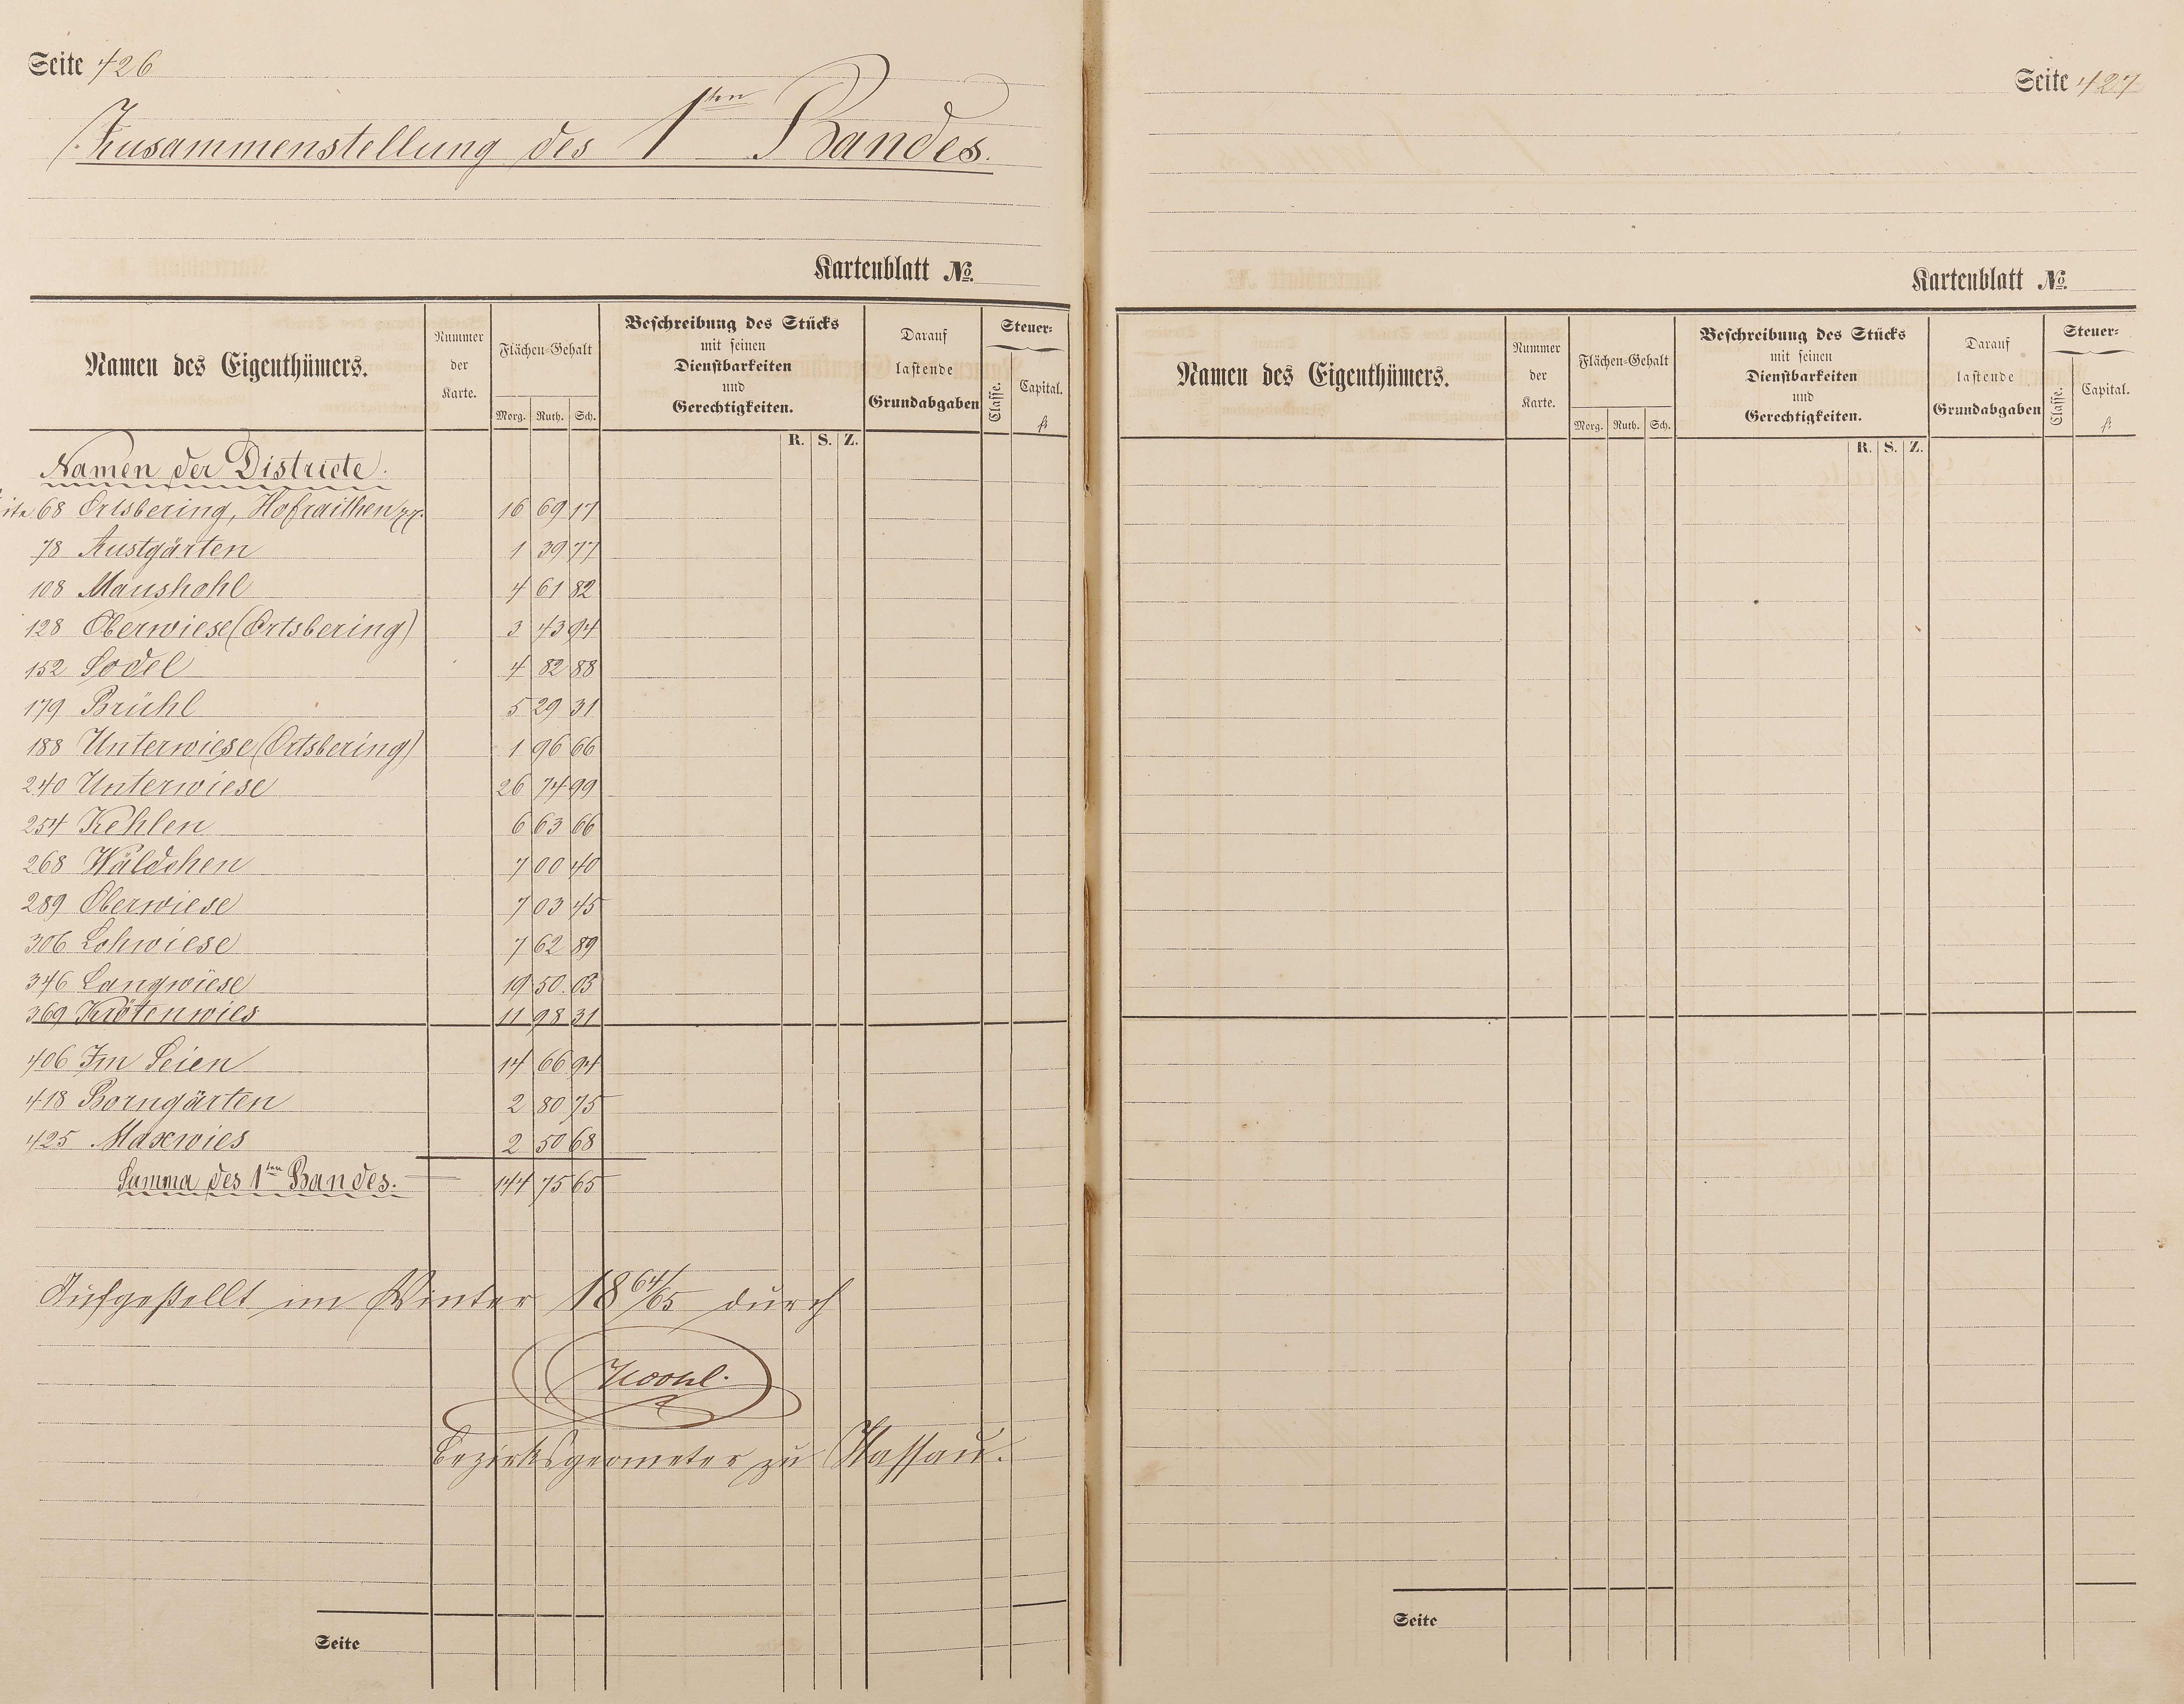 Seite 426
Zusammenstellung des 1ten Bandes.
Kartenblatt No.
Namen des Eigenthümers.
Nummer der Karte.
Flächen-Gehalt
Morg. Ruth. Sch.
Beschreibung des Stücks
mit seinen
Dienstbarkeiten
und
Gerechtigkeiten.
R. S. Z.
Darauf
lastende
Grundabgaben
Steuer-
Classe. Capital.
fl.
Namen der Districte.
68 Ortsbering, Hofraithen 16 69 17
78 1 39 77
108 Maushohl 4 61 82
128 Oberwiese (Ortsbering) 3 43 94
152 Sodel 4 82 88
179 Brühl 5 29 31
188 Unterwiese (Ortsbering) 1 96 66
240 Unterwiese 26 74 99
254 Kehlen 6 63 66
268 Wäldchen 7 00 40
289 Oberwiese 7 03 45
306 Lohwiese 7 62 89
346 Langwiese 19 50 03
369 Krötenwies 11 98 31
406 Im Seien 14 66 94
418 Borngärten 2 80 75
425 Maxwies 2 50 68
Summa des 1ten Bandes. 144 75 65
Aufgestellt im Winter 1864/65 durch
Bezirksgeometer zu Nassau.
Seite
Seite 427
Kartenblatt No.
Namen des Eigenthümers.
Nummer der Karte.
Flächen-Gehalt
Morg. Ruth. Sch.
Beschreibung des Stücks
mit seinen
Dienstbarkeiten
und
Gerechtigkeiten.
R. S. Z.
Darauf
lastende
Grundabgaben
Steuer-
Classe. Capital.
fl.
Seite